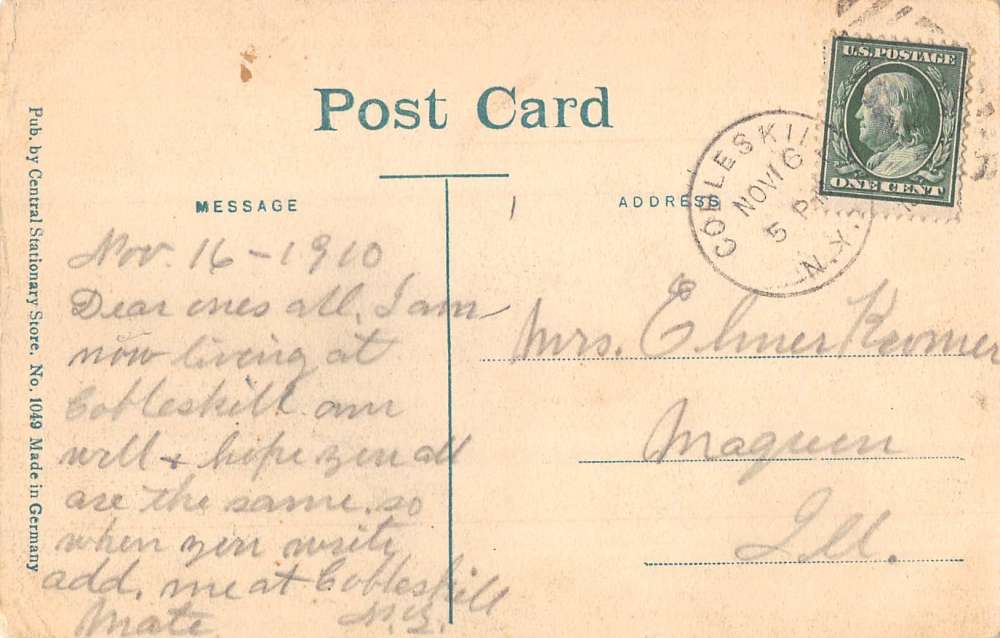 Post Card
MESSAGE
ADDRESS
U.S. POSTAGE
ONE CENT
COBLESKILL
NOV 16
5 P
N.Y.
Nov. 16 - 1910
Dear ones all. I am
now living at
Cobleskill am
well + hope you all
are the same. so
when you write
add. me at Cobleskill
Mate N.Y.
Mrs. Elmer
Maquon
Ill.
Pub. by Central Stationary Store. No. 1049 Made in Germany